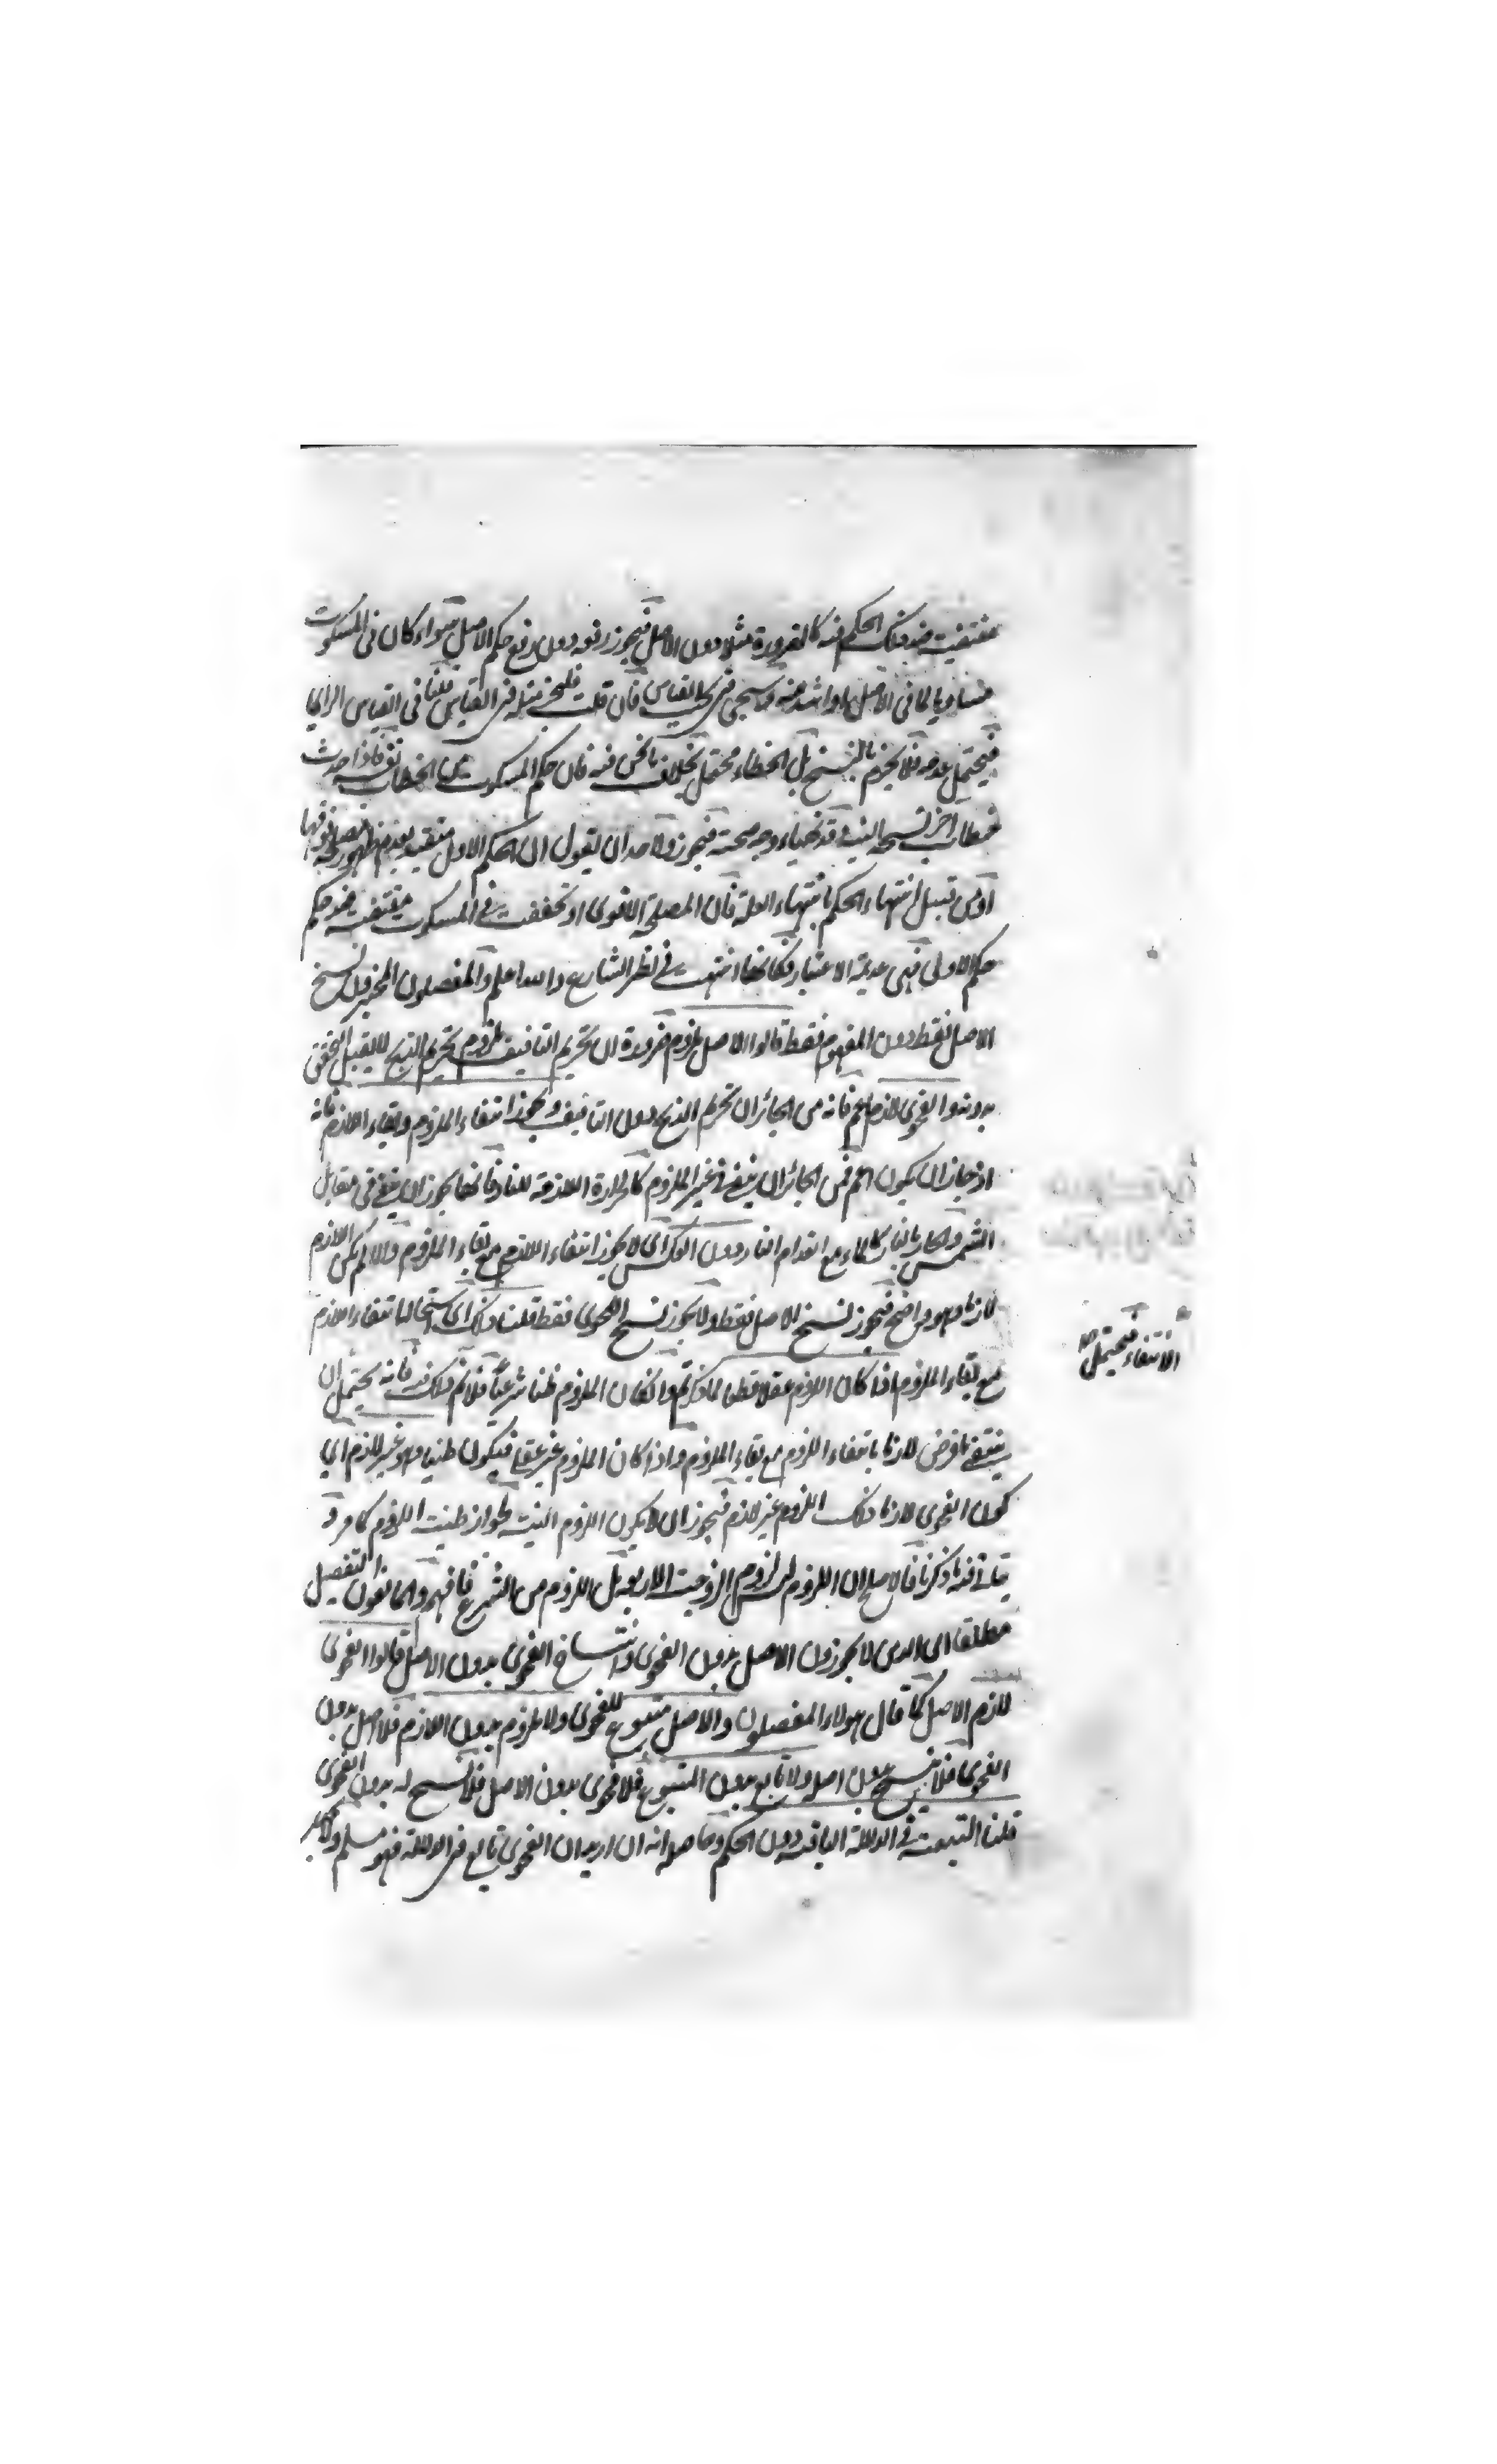 مقتضية ضد ذلك الحكم فيه كالضرورة مثلا دون الاصل فيجوز رفعه دون رفع حكم الاصل سواء كان في المسكوت
مساويا لما في الاصل او اشد منه وسيجئ في القياس فان قلت مثله في القياس قلنا في القياس الرأي
فيحتمل عدمه فلا يجزم بالنسخ بل الخطاء محتمل بخلاف ما نحن فيه فان حكم المسكوت من الخطاب نفسه فاذا حدث
خطاب اخر وجه صحته فيجوز ولاحد ان يقول ان الحكم الاول مقيد بعدم ظهور
او من قبيل انتهاء الحكم بانتهاء العلة فان المصلحة الاقوى اذ تحققت في المسكوت مقتضية ضد حكم
حكم الاولى فهي عديمة الاعتبار فكانها انتهت في نظر الشارع والله اعلم والمفصلون المجيزون نسخ
الاصل فقط دون المفهوم فقط قالوا الاصل ملزوم ضرورة ان تحريم التافيف ملزوم تحريم الذبح لا يقبل التحقق
بدونه والفحوى لازم اعم فانه من الجائز ان تحريم الذبح دون التافيف ويجوز انتفاء الملزوم وبقاء اللازم فانه
اذ جاز ان يكون اعم فمن الجائز ان يبقى في غير الملزوم كالحرارة اللازمة للنار فانها يجوز ان يبقى في مقابل
الشمس والحار بالنار كالماء مع انعدام النار دون العكس اى لا يجوز انتفاء اللازم مع بقاء الملزوم والا لم يكن اللازم
لازما وهو واضح فيجوز نسخ الاصل فقط ولا يجوز نسخ الفحوى فقط قلنا ذلك اى استحالة انتفاء اللازم
مع بقاء الملزوم اذا كان اللزوم عقلا قطعا لما ذكرتم وان كان الملزوم ظنا شرعيا فلا نم ذلك فيه فانه يحتمل ان
ينتفى ما فرض لازما بانتفاء اللزوم مع بقاء الملزوم واذا كان اللزوم غير عقلى فيكون ظنيا وهو غير لازم اى
كون الفحوى لازما ذلك اللزوم غير لازم فيجوز ان لا يكون اللزوم البتة لجواز ظنية اللزوم كما مر و
ما ذكرنا فالاصح ان اللزوم ليس لزوم الزوجية للاربعة بل اللزوم من الشرع فافهم والمانعون التفصيل
مطلقا اى الذى لا يجوزون الاصل بدون الفحوى وانتساخ الفحوى بدون الاصل قالوا الفحوى
لازم الاصل كما قال هولاء المفصلون والاصل متبوع للفحوى ولا ملزوم بدون اللازم فلا اصل بدون
الفحوى فلا ينسخ بدون اصله ولا تابع بدون المتبوع فلا فحوى بدون الاصل فلا نسخ له بدون الفحوى
قلنا التبعية في الدلالة الباقية دون الحكم وحاصله انه ان اريد ان الفحوى تابع في الدلالة فهو مسلم
الانتفاء فيحتمل